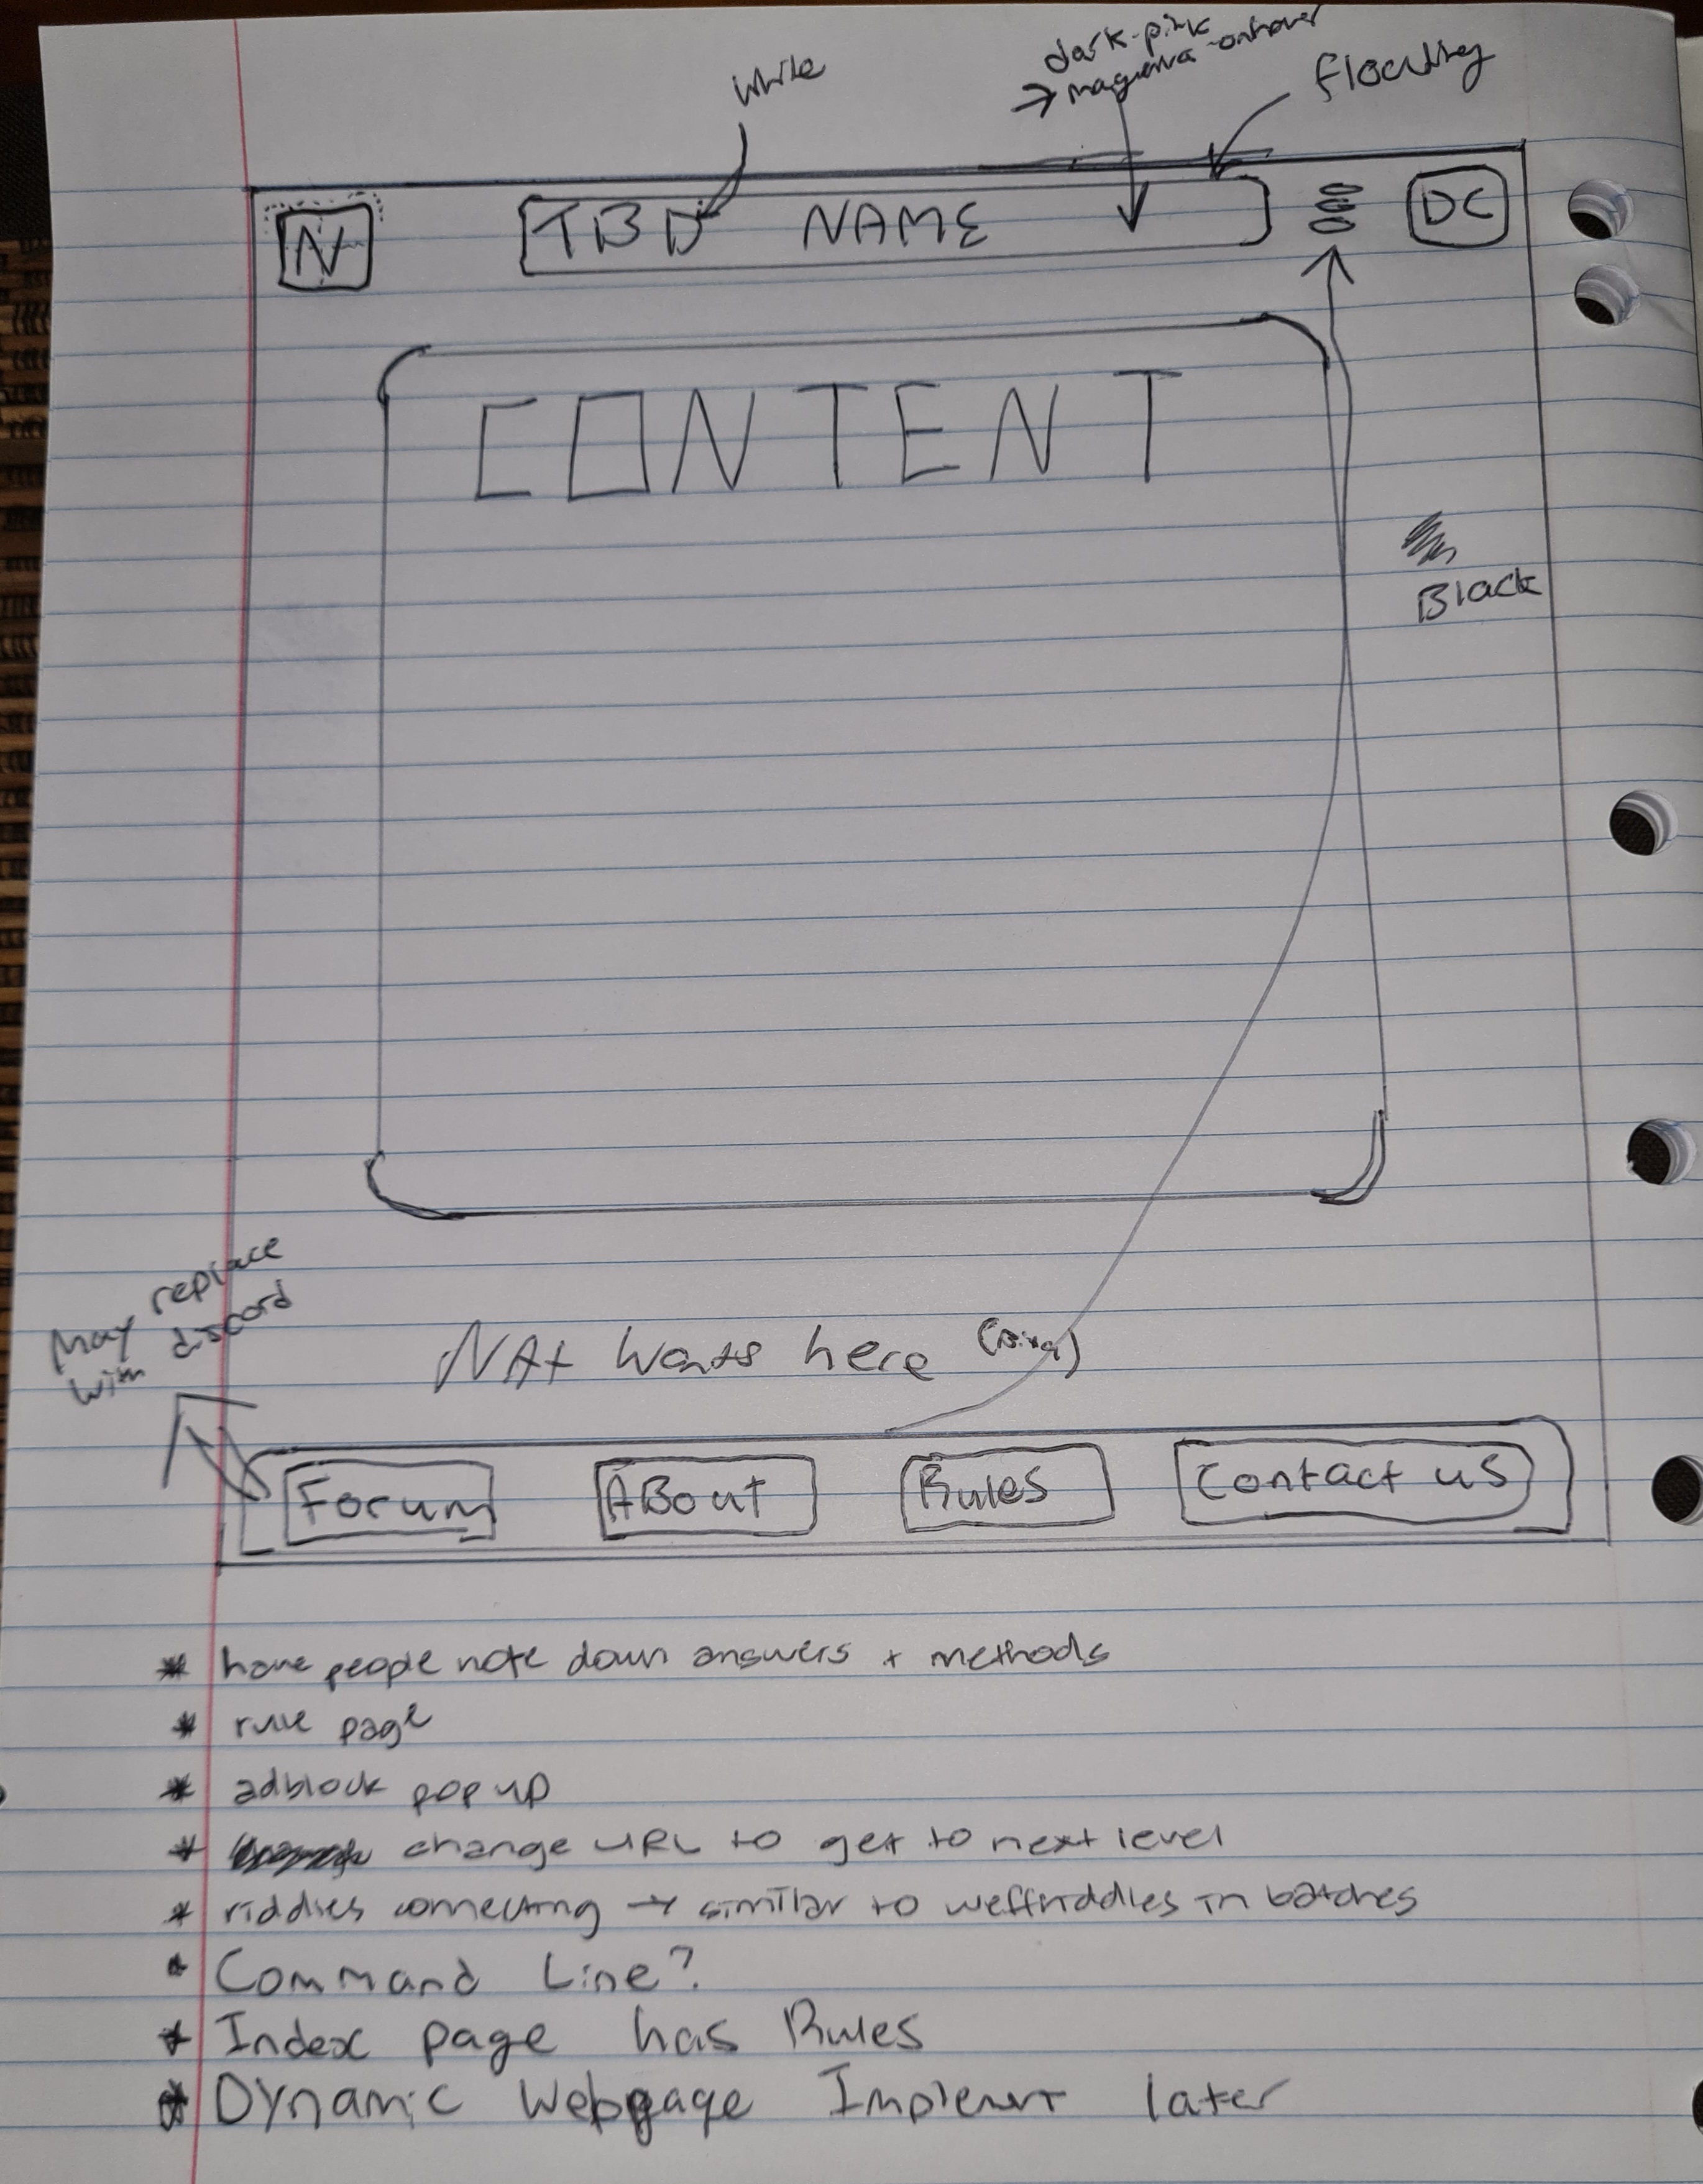 white
dark-pink
magenta-onhover
floating
N
TBD NAME
DC
CONTENT
Black
May replace
with discord
NAt wants here
Forum
ABout
Rules
Contact us
* have people note down answers + methods
* rule page
* adblock pop up
* change URL to get to next level
* riddles connecting → similar to weffriddles in batches
* Command Line?
* Index page has Rules
* Dynamic Webpage Implement later